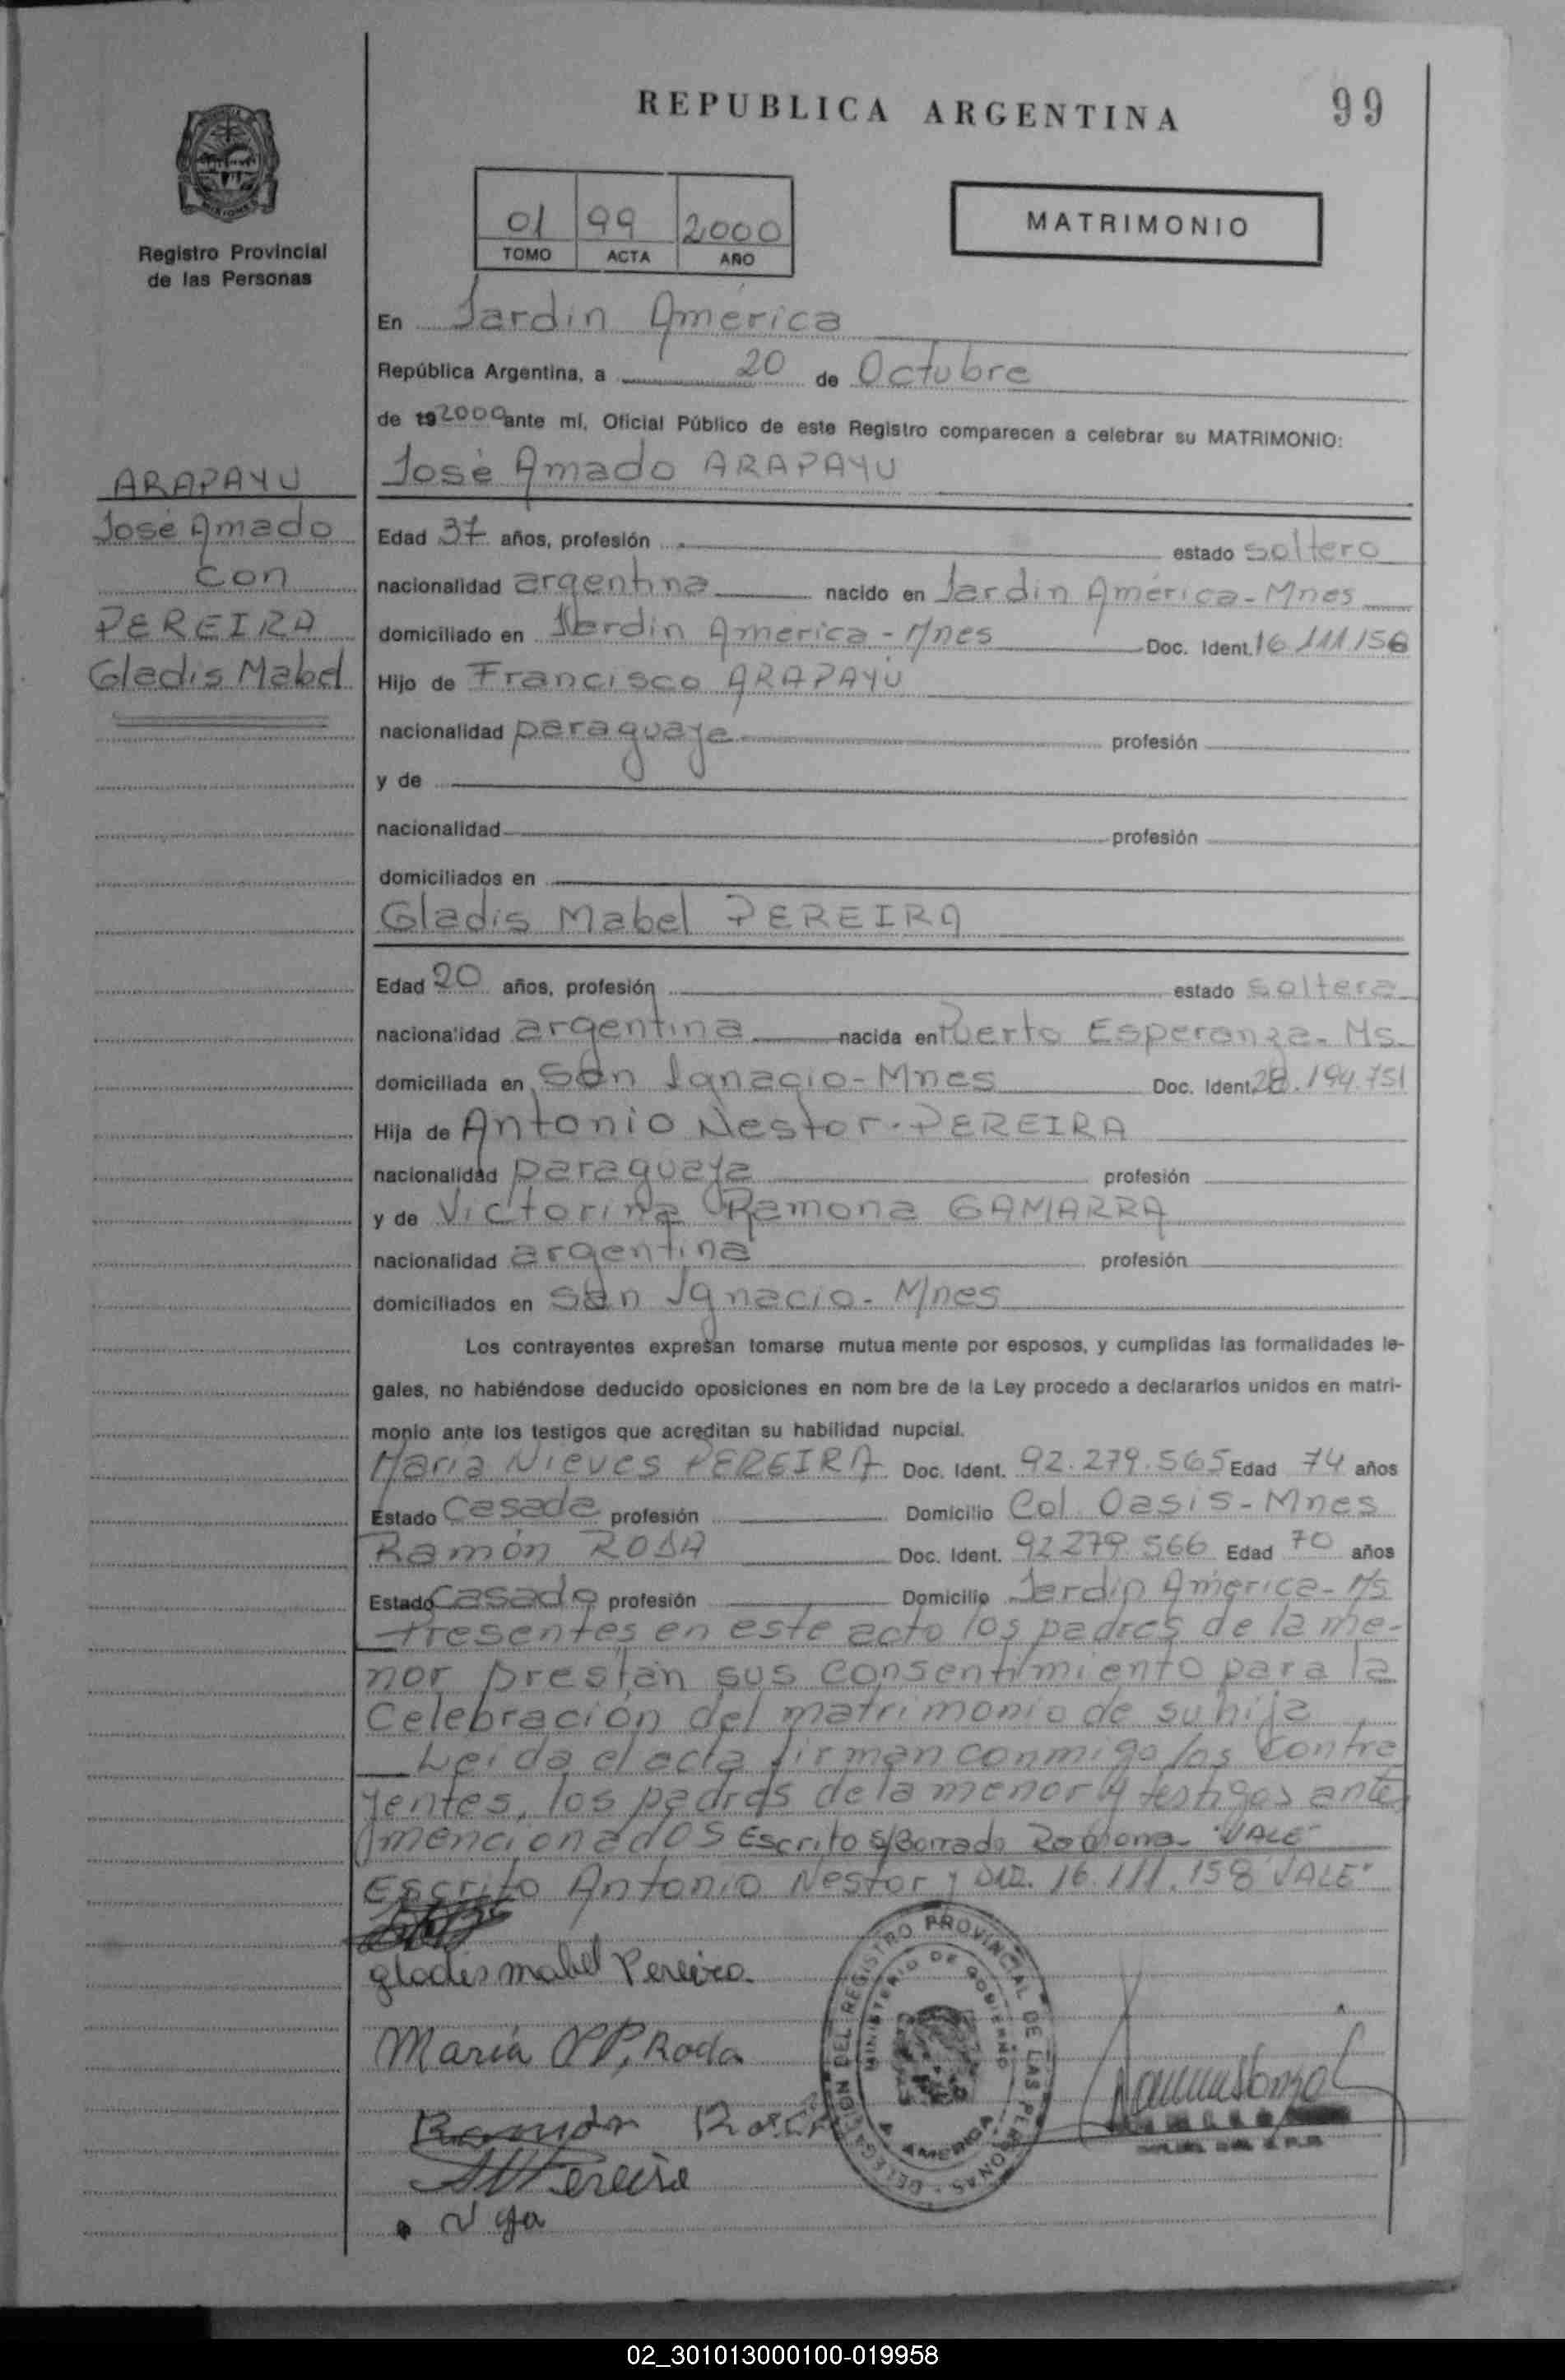 REPUBLICA ARGENTINA
99
Registro Provincial
de las Personas
01 99 2000
TOMO ACTA AÑO
MATRIMONIO
En Jardín América
República Argentina, a 20 de Octubre
de 192000 ante mí, Oficial Público de este Registro comparecen a celebrar su MATRIMONIO:
José Amado ARAPAYU
ARAPAYU
José Amado
con
PEREIRA
Gladis Mabel
Edad 37 años, profesión estado soltero
nacionalidad argentina nacido en Jardín América - Mnes
domiciliado en Jardín America - Mnes Doc. Ident. 16.111.158
Hijo de Francisco ARAPAYÚ
nacionalidad paraguaya profesión
y de
nacionalidad profesión
domiciliados en
Gladis Mabel PEREIRA
Edad 20 años, profesión estado soltera
nacionalidad argentina nacida en Puerto Esperanza - Ms.
domiciliada en San Ignacio - Mnes Doc. Ident. 28.194.751
Hija de Antonio Nestor PEREIRA
nacionalidad paraguaya profesión
y de Victorina Ramona GAMARRA
nacionalidad argentina profesión
domiciliados en San Ignacio - Mnes
Los contrayentes expresan tomarse mutua mente por esposos, y cumplidas las formalidades le-
gales, no habiéndose deducido oposiciones en nom bre de la Ley procedo a declararlos unidos en matri-
monio ante los testigos que acreditan su habilidad nupcial.
María Nieves PEREIRA Doc. Ident. 92.279.565 Edad 74 años
Estado Casada profesión Domicilio Col. Oasis - Mnes
Ramón RODA Doc. Ident. 92279566 Edad 70 años
Estado Casado profesión Domicilio Jardín América - Ms
Presentes en este acto los padres de la me-
nor prestan sus consentimiento para la
Celebración del matrimonio de su hija
Leida el acta firman conmigo los contra
yentes, los padres de la menor y testigos antes
mencionados Escrito s/Borrado Ramona "VALE"
Escrito Antonio Nestor y 16.111.158 "VALE"
gladis mabel Pereira
María P, Roda
Ramón
Pereira
DELEGACION DEL REGISTRO PROVINCIAL DE LAS PERSONAS
MINISTERIO DE GOBIERNO
AMERICA
02_301013000100-019958